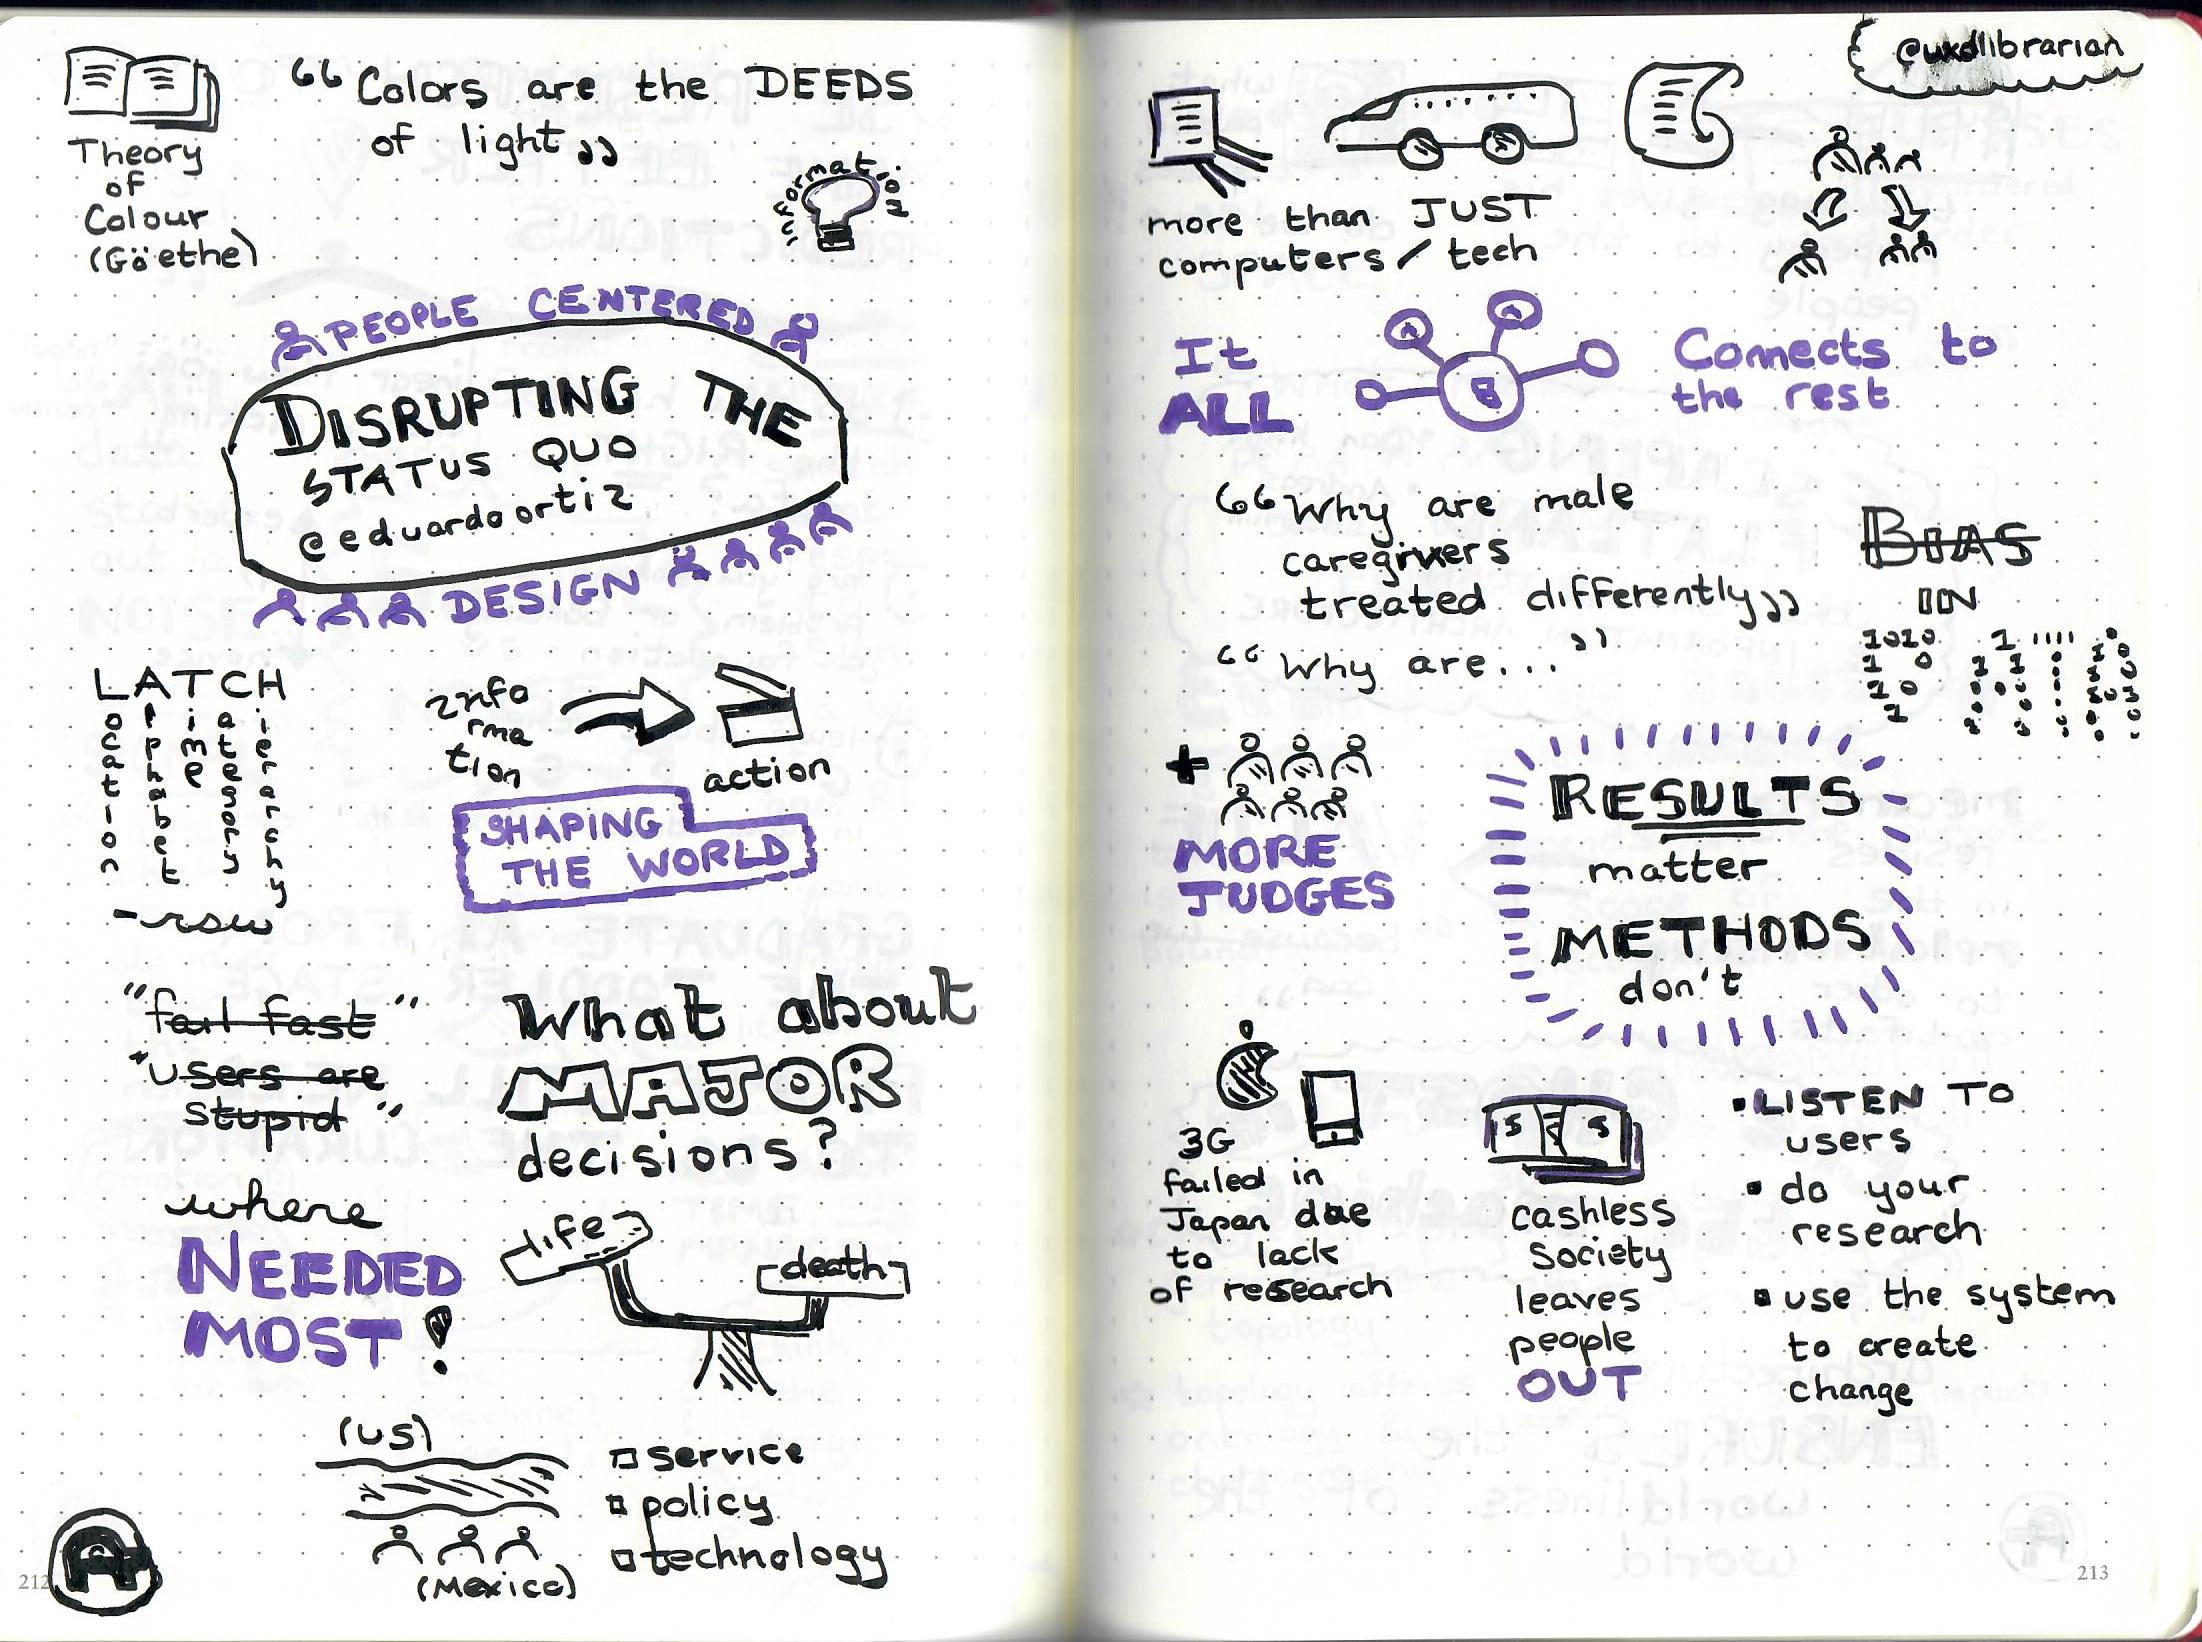 Theory
of
Colour
(Göethe)
“Colors are the DEEDS
of light”
information
PEOPLE CENTERED
DISRUPTING THE
STATUS QUO
@eduardoortiz
DESIGN
LATCH
Location
Alphabet
Time
Category
Hierarchy
-rsw
Info
rma
tion
action
SHAPING
THE WORLD
"fail fast"
"users are
stupid"
where
NEEDED
MOST!
What about
MAJOR
decisions?
life
death
(US)
(Mexico)
service
policy
technology
212
@uxdlibrarian
more than JUST
computers / tech
It
ALL
Connects to
the rest
“Why are male
caregivers
treated differently”
“Why are...”
BIAS
IN
1010
+
MORE
JUDGES
RESULTS
matter
METHODS
don't
3G
failed in
Japan due
to lack
of research
cashless
society
leaves
people
OUT
▪ LISTEN TO
users
▪ do your
research
▪ use the system
to create
change
213